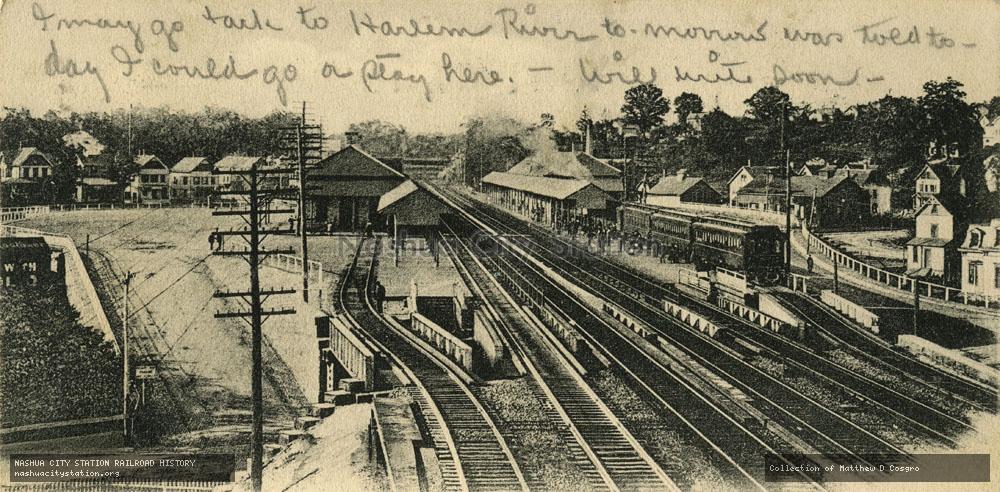 I may go back to Harlem River to-morrow was told to-
day I could go a stay here. - Will write soon -
Nashua City Station
NASHUA CITY STATION RAILROAD HISTORY
nashuacitystation.org
Collection of Matthew D Cosgro